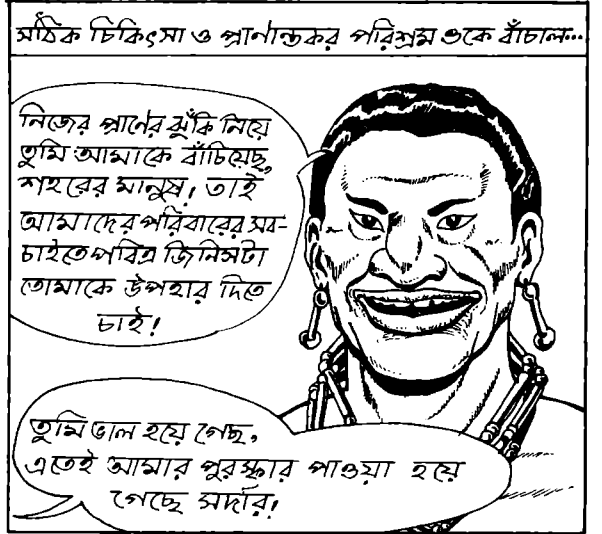 সঠিক চিকিৎসা ও প্রাণান্তকর পরিশ্রম ওকে বাঁচাল...
নিজের প্রাণের ঝুঁকি নিয়ে
তুমি আমাকে বাঁচিয়েছ,
শহরের মানুষ! তাই
আমাদের পরিবারের সব-
চাইতে পবিত্র জিনিসটা
তোমাকে উপহার দিতে
চাই!
তুমি ভাল হয়ে গেছ,
এতেই আমার পুরস্কার পাওয়া হয়ে
গেছে সর্দার!